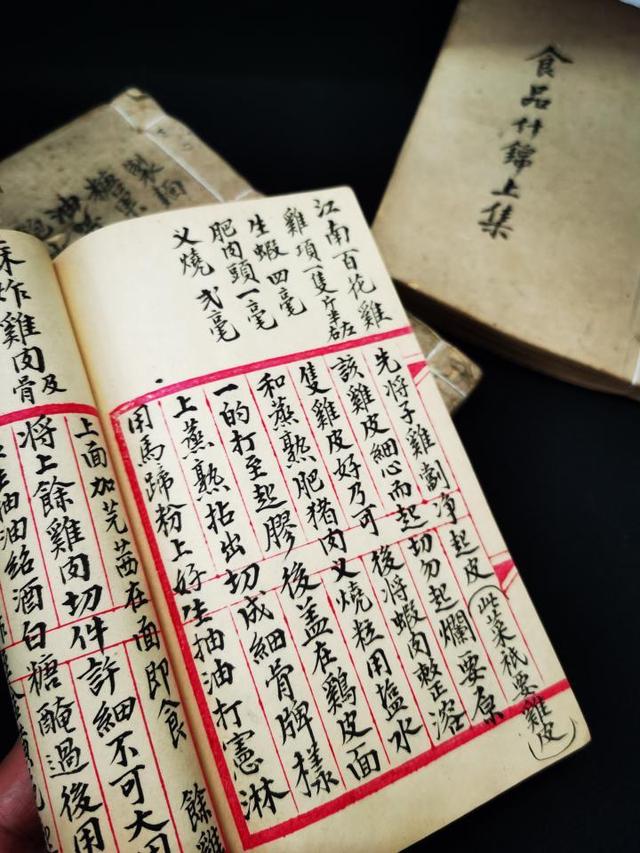 食品什錦上集
糖菓
油
江南百花雞
雞項一隻斤半左右
生蝦四毫
肥肉頭一毫
义燒弍毫
先将子雞劏净起皮(此菜祇要雞皮)
該雞皮細心而起切勿起爛要原
隻雞皮好乃可後将蝦肉敕正溶
和蒸熟肥猪肉义燒粒用塩水
一的打至起膠後盖在鷄皮面
上蒸熟拈出切成細骨牌樣
用馬蹄粉上好生抽油打憲淋
上面加芫茜在面即食 餘雞
炸雞肉及骨
将上餘雞肉切件許細不可大用
抽油紹酒白糖醃過後用